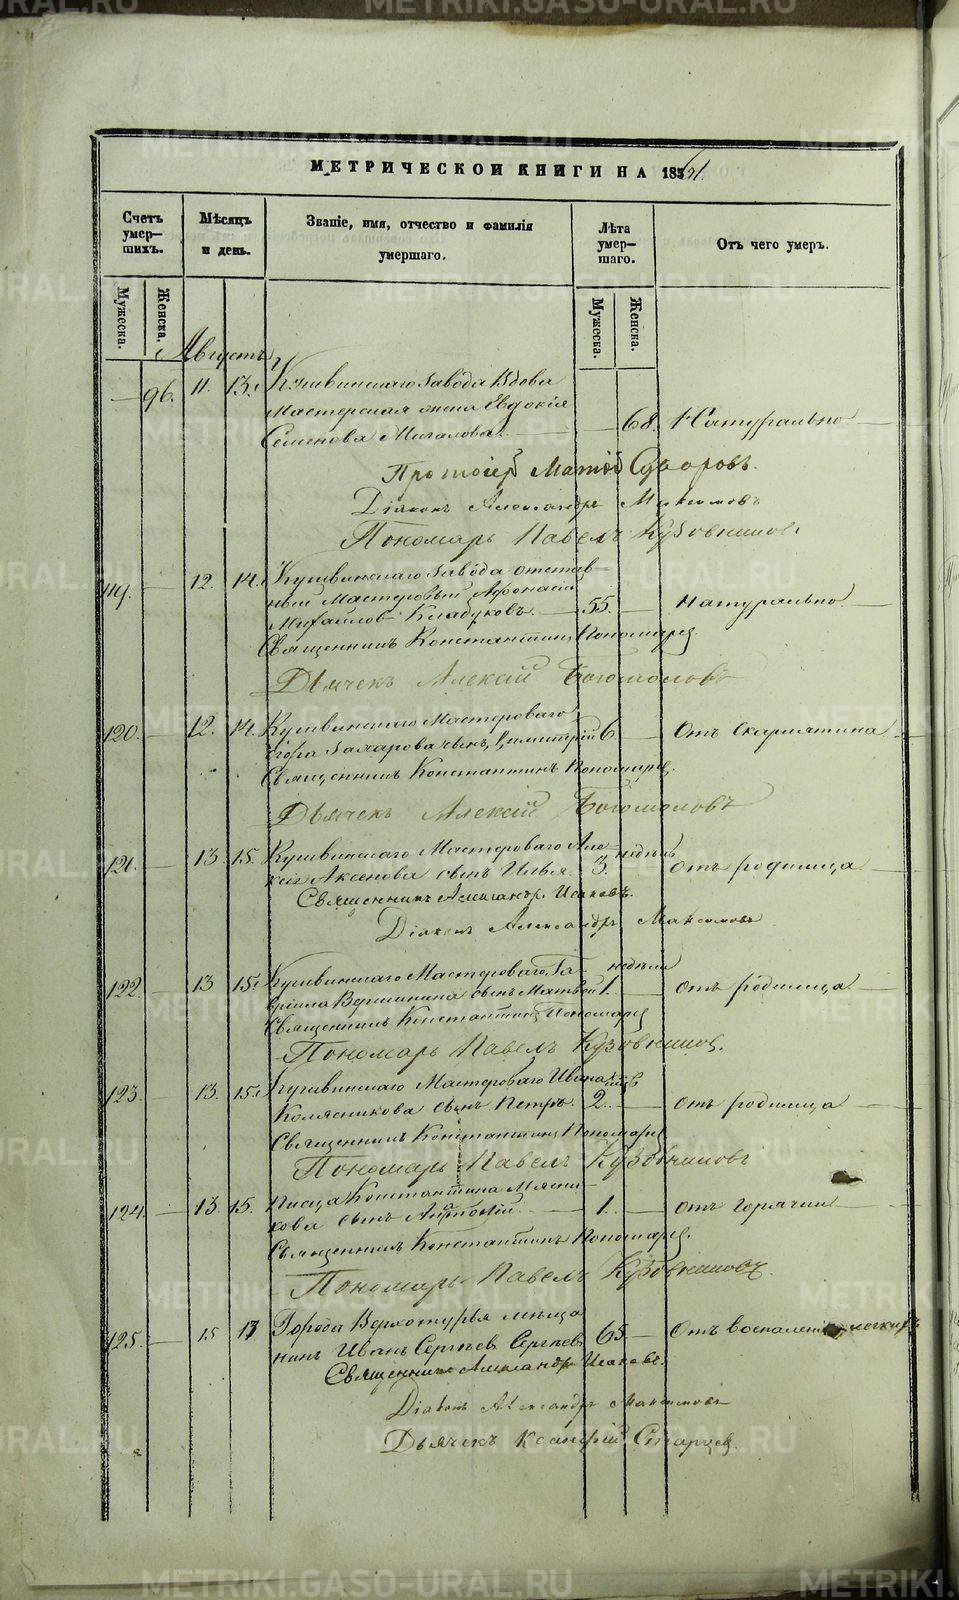 METRIKI.GASO-URAL.RU
МЕТРИЧЕСКОЙ КНИГИ НА 1861.
Счетъ умер-шихъ.
Мѣсяцъ и день.
Званіе, имя, отчество и фамилія умершаго.
Лѣта умер-шаго.
Отъ чего умеръ.
Мужеска. Женска. Мужеска. Женска.
Августъ
— 96. 11. 13. Кушвинскаго Завода Вдова
Мастерская жена Евдокія
Семенова 68. Натурально
Протоіерей Матѳій Суворовъ.
Діаконъ Александръ Максимовъ
Пономарь Павелъ Кузовниковъ
119. — 12. 14. Кушвинскаго Завода отстав-
ный Мастеровый Аѳонасій
Михайлов Кладуковъ. 55. — Натурально
Священникъ Константинъ Пономаревъ
Дьячекъ Алексій Богомоловъ
120. — 12. 14. Кушвинскаго Мастероваго
Захарова сынъ Димитрій 6 — Отъ скарлятина
Священникъ Константинъ Пономаревъ.
Дьячекъ Алексій Богомоловъ
121. — 13. 15. Кушвинскаго Мастероваго Але-
недѣль
ксія Аксенова сынъ Илья. 3. — отъ родимца
Священникъ Александръ Исаковъ.
Діаконъ Александръ Максимовъ
122. — 13 15. Кушвинскаго Мастероваго Га-
недѣли
вріила Вершинина сынъ Матвей 1. — отъ родимца
Священникъ Константинъ Пономаревъ
Пономарь Павелъ Кузовниковъ.
123. — 13. 15. Кушвинскаго Мастероваго Ивана
Колясникова сынъ Петръ. 2. — отъ родимца
Священникъ Константинъ Пономаревъ
Пономарь Павелъ Кузовниковъ
124. — 13 15. Писца Константина Мясни-
кова сынъ 1. — отъ горячки
Священникъ Константинъ Пономаревъ.
Пономарь Павелъ Кузовниковъ.
125. — 15 17 Города Верхотурья мѣща-
нинъ Иванъ Сергѣевъ Сергѣевъ 65 — Отъ воспаленія легкихъ
Священникъ Александръ Исаковъ.
Діаконъ Александръ Максимовъ
Дьячекъ Ксанфій Старцевъ.